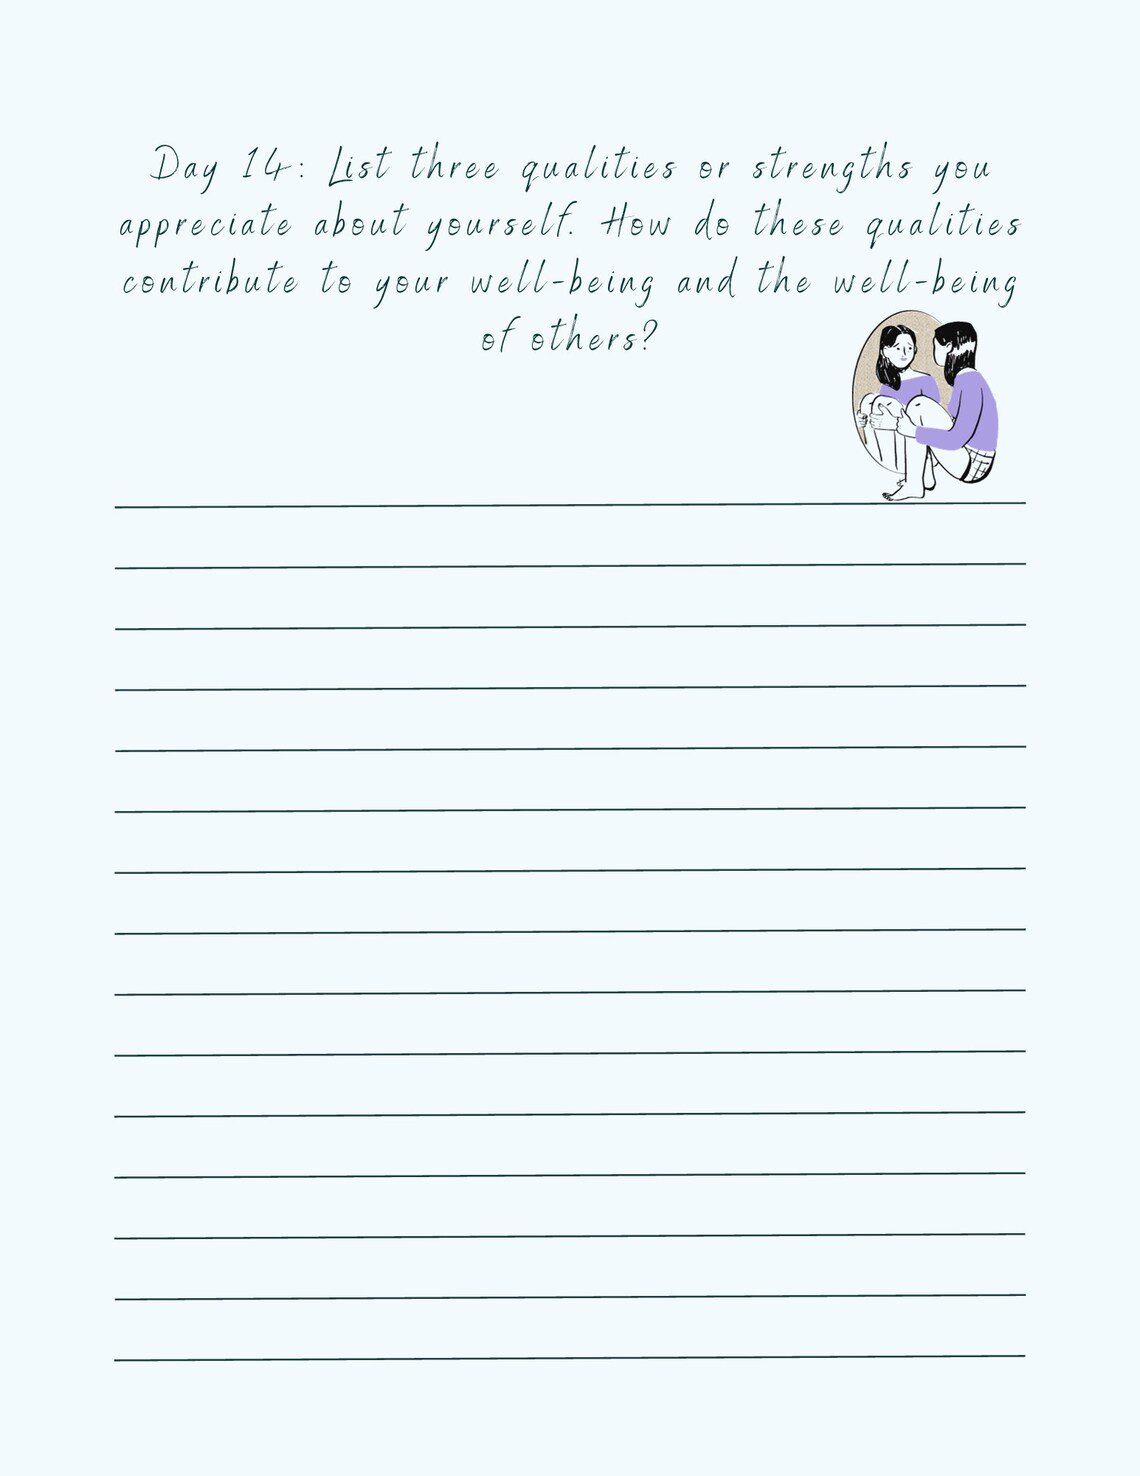 Day 14: List three qualities or strengths you
appreciate about yourself. How do these qualities
contribute to your well-being and the well-being
of others?